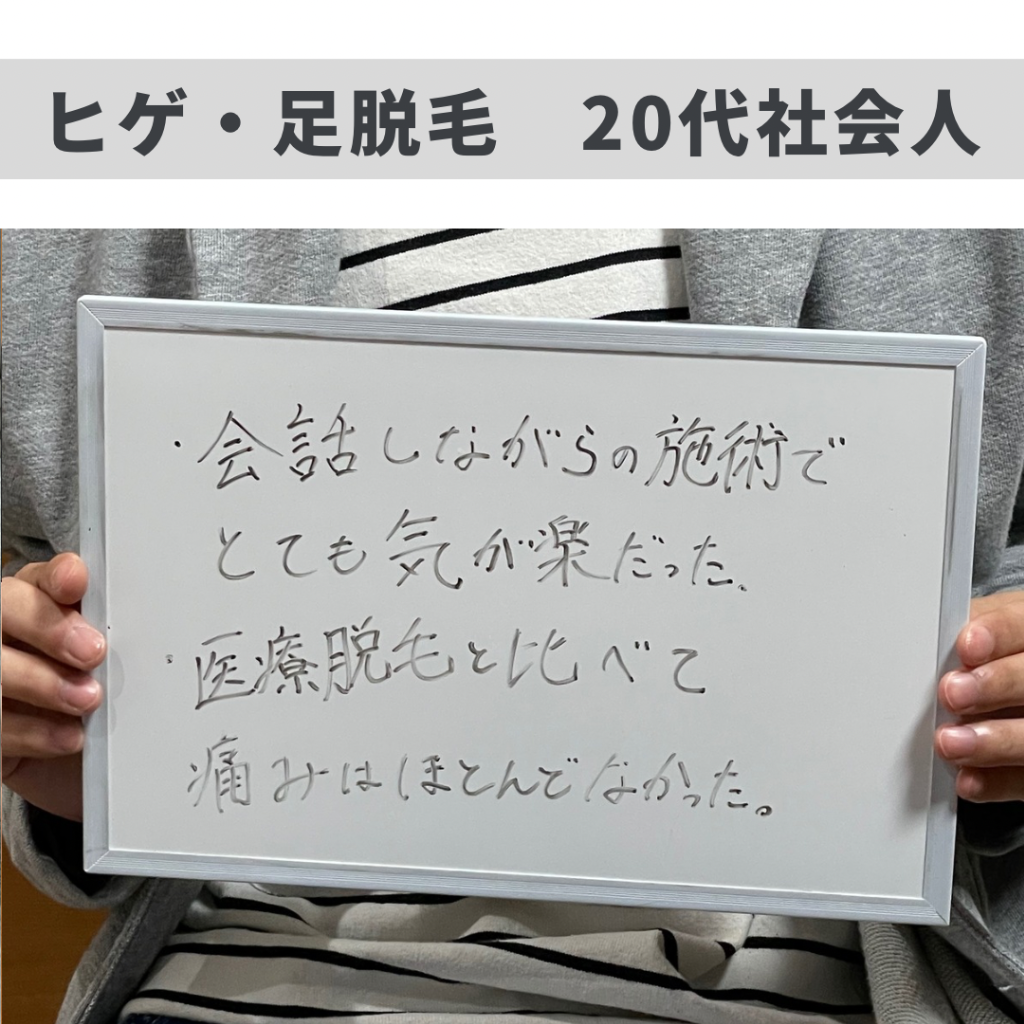 ヒゲ・足脱毛　20代社会人
・会話しながらの施術で
とても気が楽だった。
・医療脱毛と比べて
痛みはほとんどなかった。